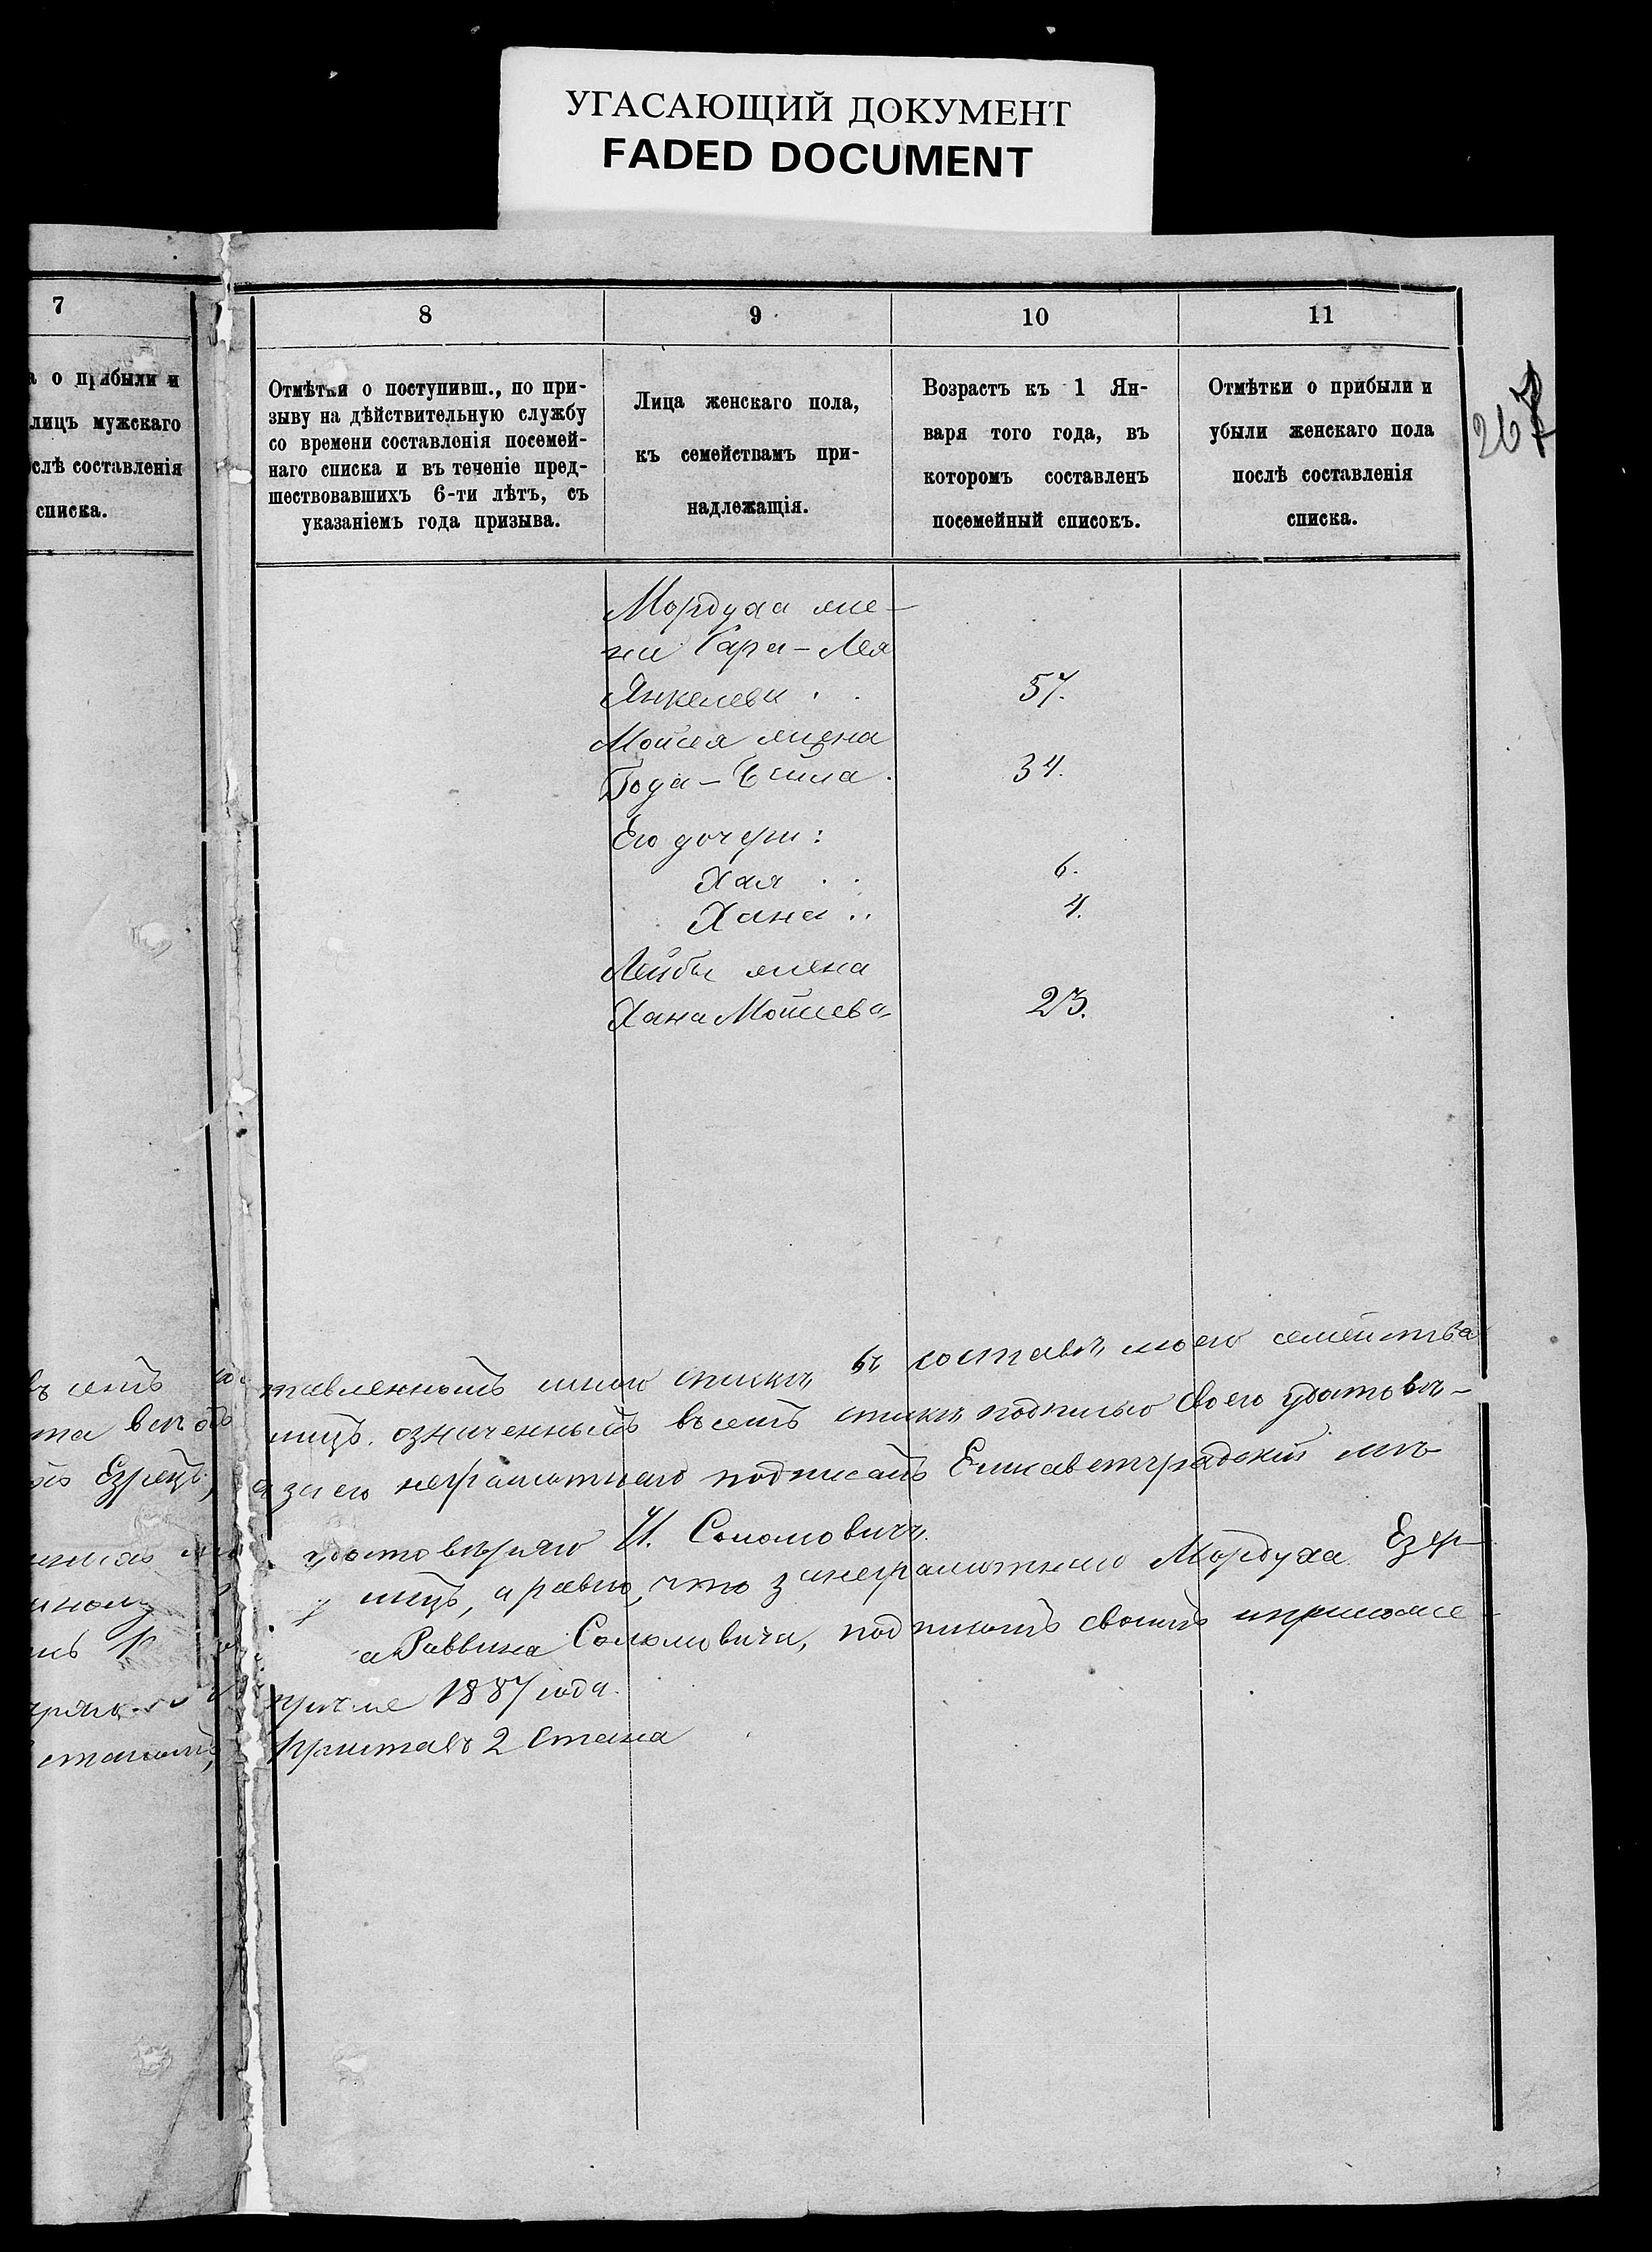 УГАСАЮЩИЙ ДОКУМЕНТ
FADED DOCUMENT
7
о прибыли и
лицъ мужскаго
слѣ составленія
списка.
8
Отмѣтки о поступивш., по при-
зыву на дѣйствительную службу
со времени составленія посемей-
наго списка и въ теченіе пред-
шествовавшихъ 6-ти лѣтъ, съ
указаніемъ года призыва.
9
Лица женскаго пола,
къ семействамъ при-
надлежащія.
10
Возрастъ къ 1 Ян-
варя того года, въ
которомъ составленъ
посемейный списокъ.
11
Отмѣтки о прибыли и
убыли женскаго пола
послѣ составленія
списка.
267
Мордуха же-
на Сара-Лея
Янкелева . . 57.
Мойсея жена
Года-Бейла . 34.
Его дочери:
Хая . . 6.
Хана . . 4.
Лейбы жена
Хана Мойсева 23.
тавленномъ мною спискѣ въ составѣ моего семейства
лицъ означенныхъ въ семъ спискѣ подписью своею удостовѣ-
Езрецъ, а за его неграмотнаго подписалъ Елисаветградскій мѣ
удостовѣряю И. Соломовичъ.
лицъ, а равно, что за неграмотнаго Мордуха Езр
Раввина Соломовича, подписомъ своимъ и приложе
1887 года.
становъ, Приставъ 2 Стана